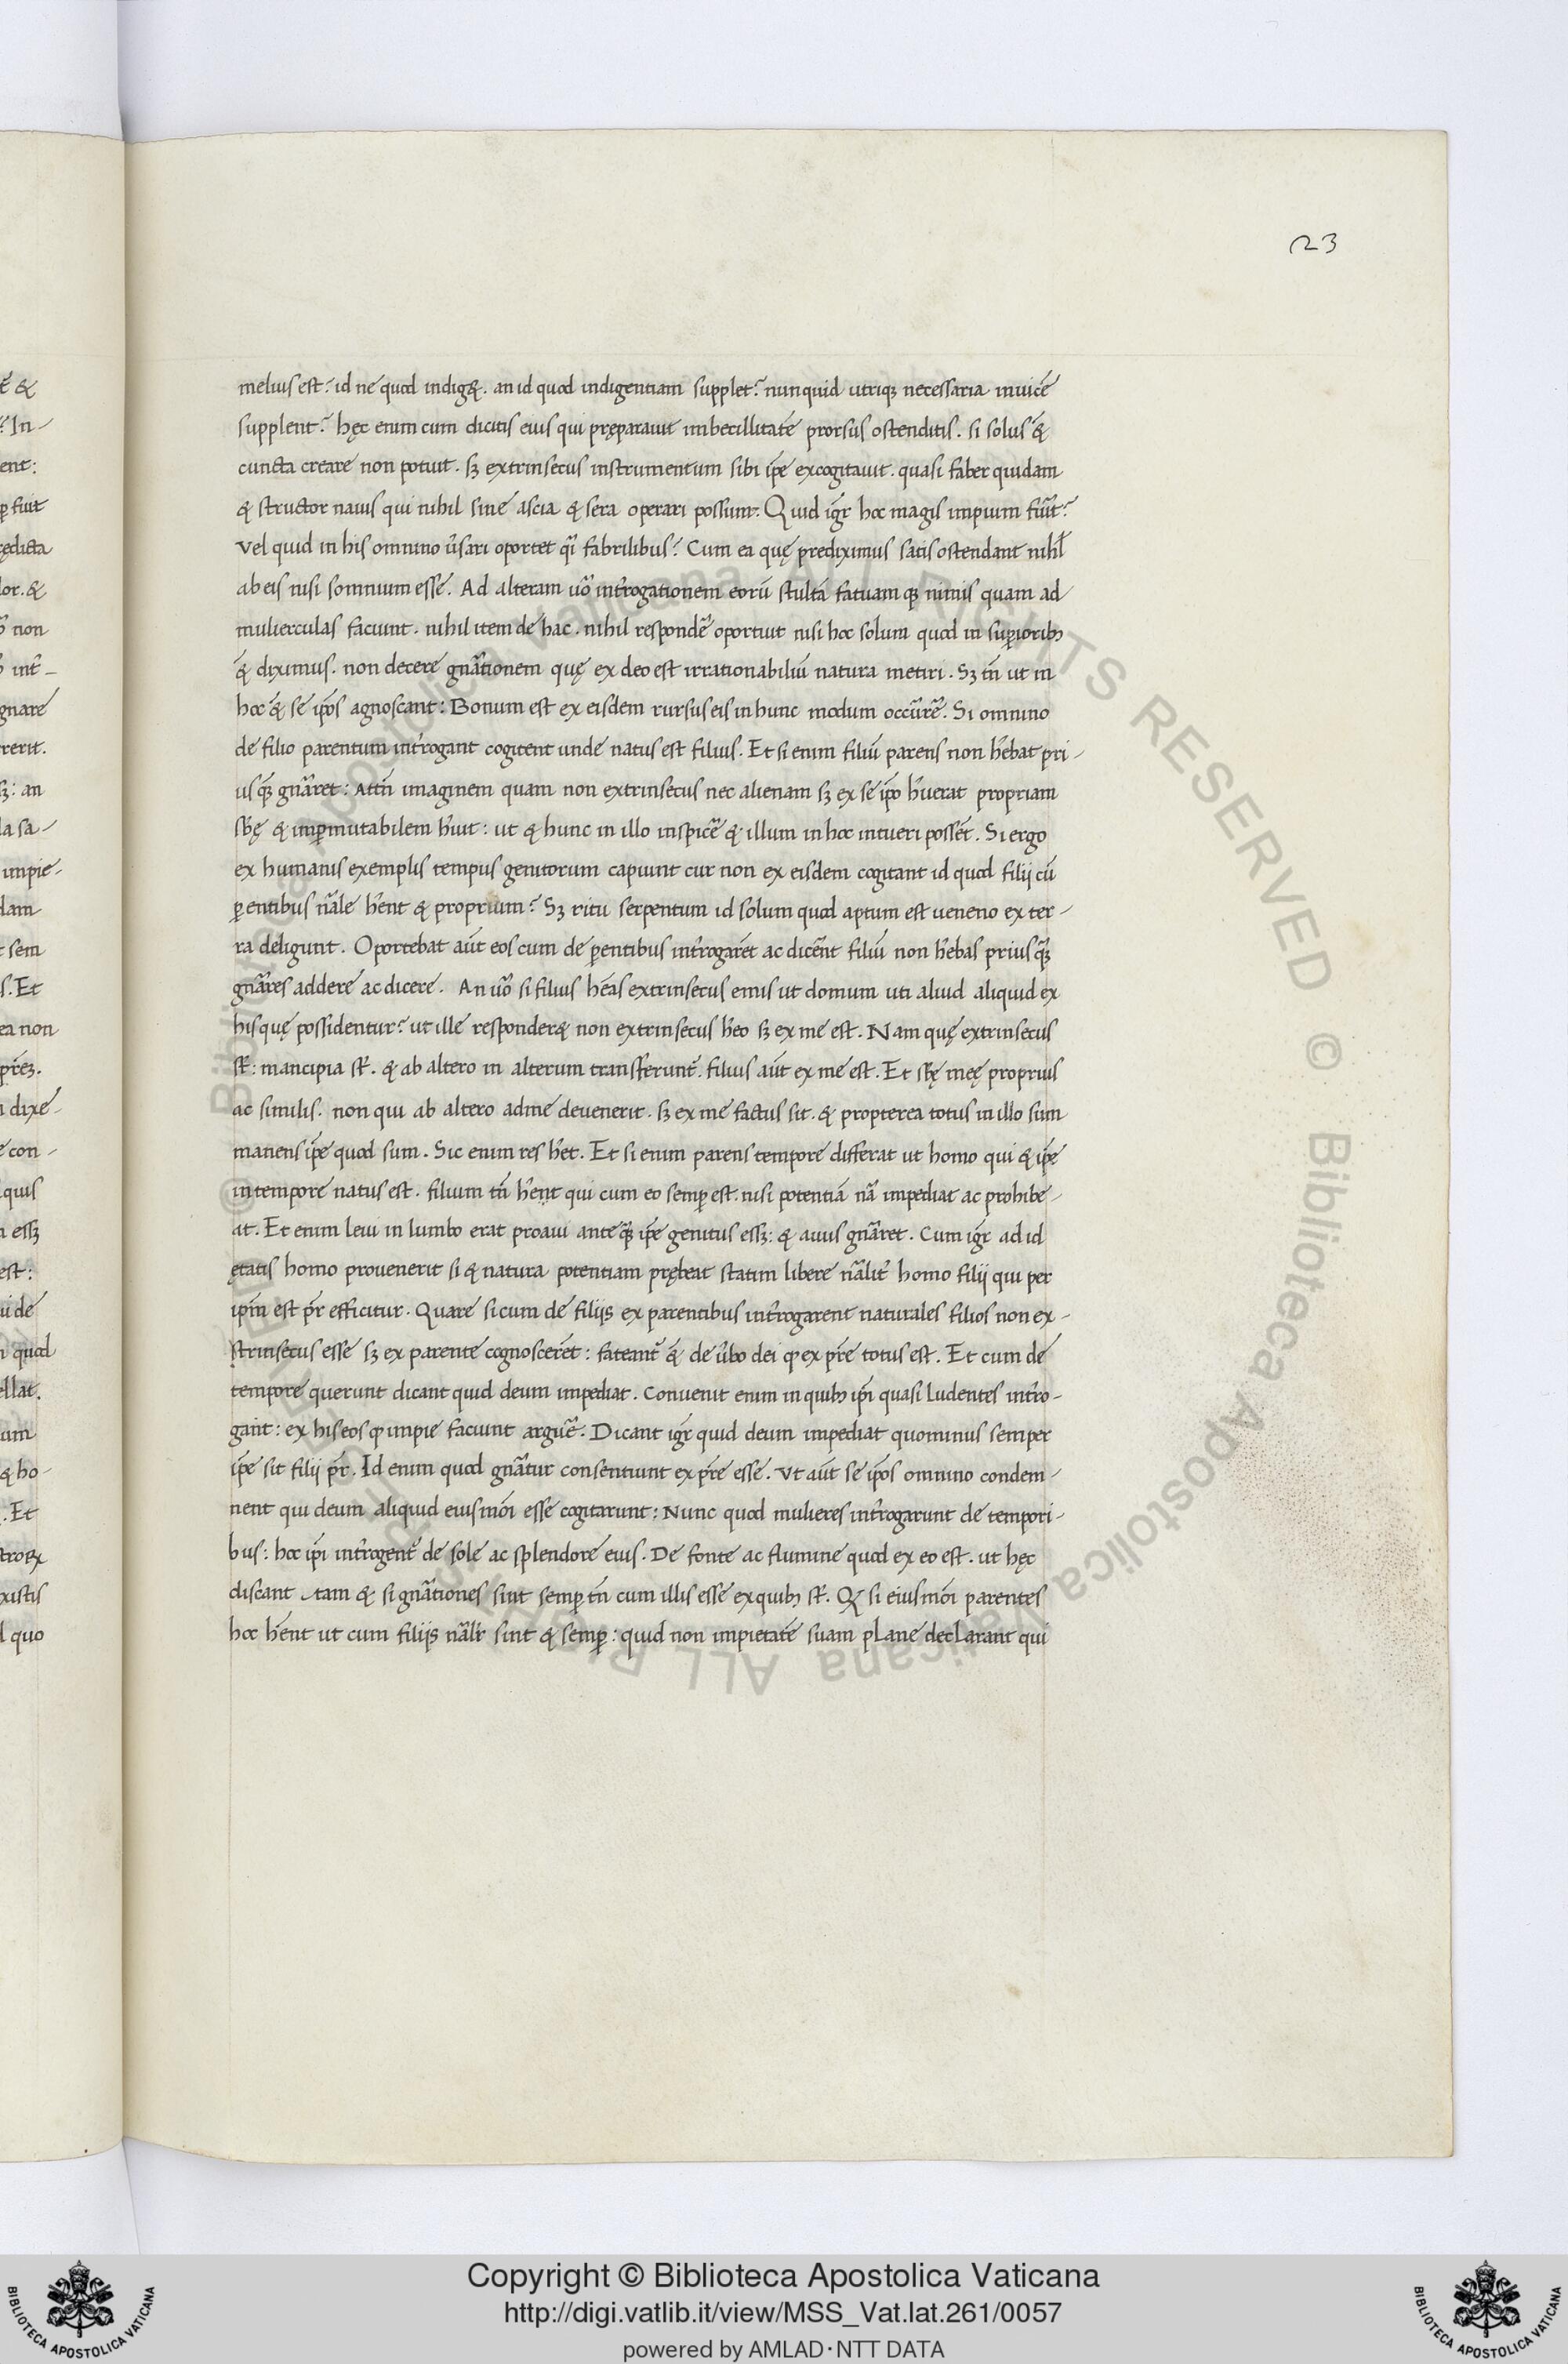 23
melius est? id ne quod indig&. an id quod indigentiam supplet? nunquid utriqꝫ necessaria inuicē
supplent? hęc enim cum dicitis eius qui pręparauit imbecillitatē prorsus ostenditis. si solus &
cuncta creare non potuit. sꝫ extrinsecus instrumentum sibi ip̄e excogitauit. quasi faber quidam
& structor nauis qui nihil sine ascia & sera operari possunt. Quid igr̄ hoc magis impium fuit?
vel quid in his omnino ūsari oportet qr̄i fabrilibus? Cum ea quę prediximus satis ostendant nihil
ab eis nisi somnium esse. Ad alteram uō intr̄ogationem eorū stultā fatuam qꝫ nimis quam ad
mulierculas faciunt. nihil item de hac. nihil respondē oportuit nisi hoc solum quod in suꝑioribꝫ
& diximus. non decere gnātionem quę ex deo est irrationabiliū natura metiri. Sꝫ tn̄ ut in
hoc & se ip̄os agnoscant: Bonum est ex eisdem rursus eis in hunc modum occūrē. Si omnino
de filio parentum intr̄ogant cogitent unde natus est filius. Et si enim filiū parens non hēbat pri-
us qꝫ gnāret: Attn̄ imaginem quam non extrinsecus nec alienam sꝫ ex se ip̄o hūerat propriam
sb̄ę & imꝑmutabilem hūit: ut & hunc in illo inspicē & illum in hoc intueri possēt. Si ergo
ex humanis exemplis tempus genitorum capiunt cur non ex eisdem cogitant id quod filij cū
ꝑentibus nāle hēnt & proprium? Sꝫ ritu serpentum id solum quod aptum est ueneno ex ter-
ra deligunt. Oportebat aūt eos cum de ꝑentibus intr̄ogarēt ac dicēnt filiū non hēbas prius qꝫ
gnāres addere ac dicere. An uō si filius hēas extrinsecus emis ut domum uti aliud aliquid ex
his quę possidentur? ut ille responder& non extrinsecus hēo sꝫ ex me est. Nam quę extrinsecus
st̄: mancipia st̄. & ab altero in alterum transferunt̄. filius aūt ex me est. Et sb̄ę meę proprius
ac similis. non qui ab altero ad me deuenerit. sꝫ ex me factus sit. & propterea totus in illo sum
manens ip̄e quod sum. Sic enim res hēt. Et si enim parens tempore differat ut homo qui & ip̄e
in tempore natus est. filium tn̄ hēnt qui cum eo semꝑ est. nisi potentiā nā impediat ac prohibe-
at. Et enim leui in lumbo erat proaui ante qꝫ ip̄e genitus essꝫ: & auus gnāret. Cum igr̄ ad id
ętatis homo prouenerit si & natura potentiam prębeat statim libere nālit̄ homo filij qui per
ip̄m est pr̄ efficitur. Quare si cum de filijs ex parentibus intr̄ogarent naturales filios non ex-
strinsecus esse sꝫ ex parente cognoscerēt: fateant̄ & de ūbo dei ꝙ ex pr̄e totus est. Et cum de
tempore querunt dicant quid deum impediat. Conuenit enim in quibꝫ ip̄i quasi ludentes intr̄o-
gant: ex his eos ꝙ impie faciunt arguē. Dicant igr̄ quid deum impediat quominus semper
ip̄e sit filij pr̄. Id enim quod gnātur consentiunt ex pr̄e esse. Vt aūt se ip̄os omnino condem-
nent qui deum aliquid eiusmōi esse cogitarunt: Nunc quod mulieres intr̄ogarunt de tempori-
bus: hoc ip̄i intr̄ogent̄ de sole ac splendore eius. De fonte ac flumine quod ex eo est. ut hęc
discant tam & si gnātiones sint semꝑ tn̄ cum illis esse ex quibꝫ st̄. Q si eiusmōi parentes
hoc hēnt ut cum filijs nālit̄ sint & semꝑ: quid non impietatē suam plane declarant qui
Copyright © Biblioteca Apostolica Vaticana
http://digi.vatlib.it/view/MSS_Vat.lat.261/0057
powered by AMLAD·NTT DATA